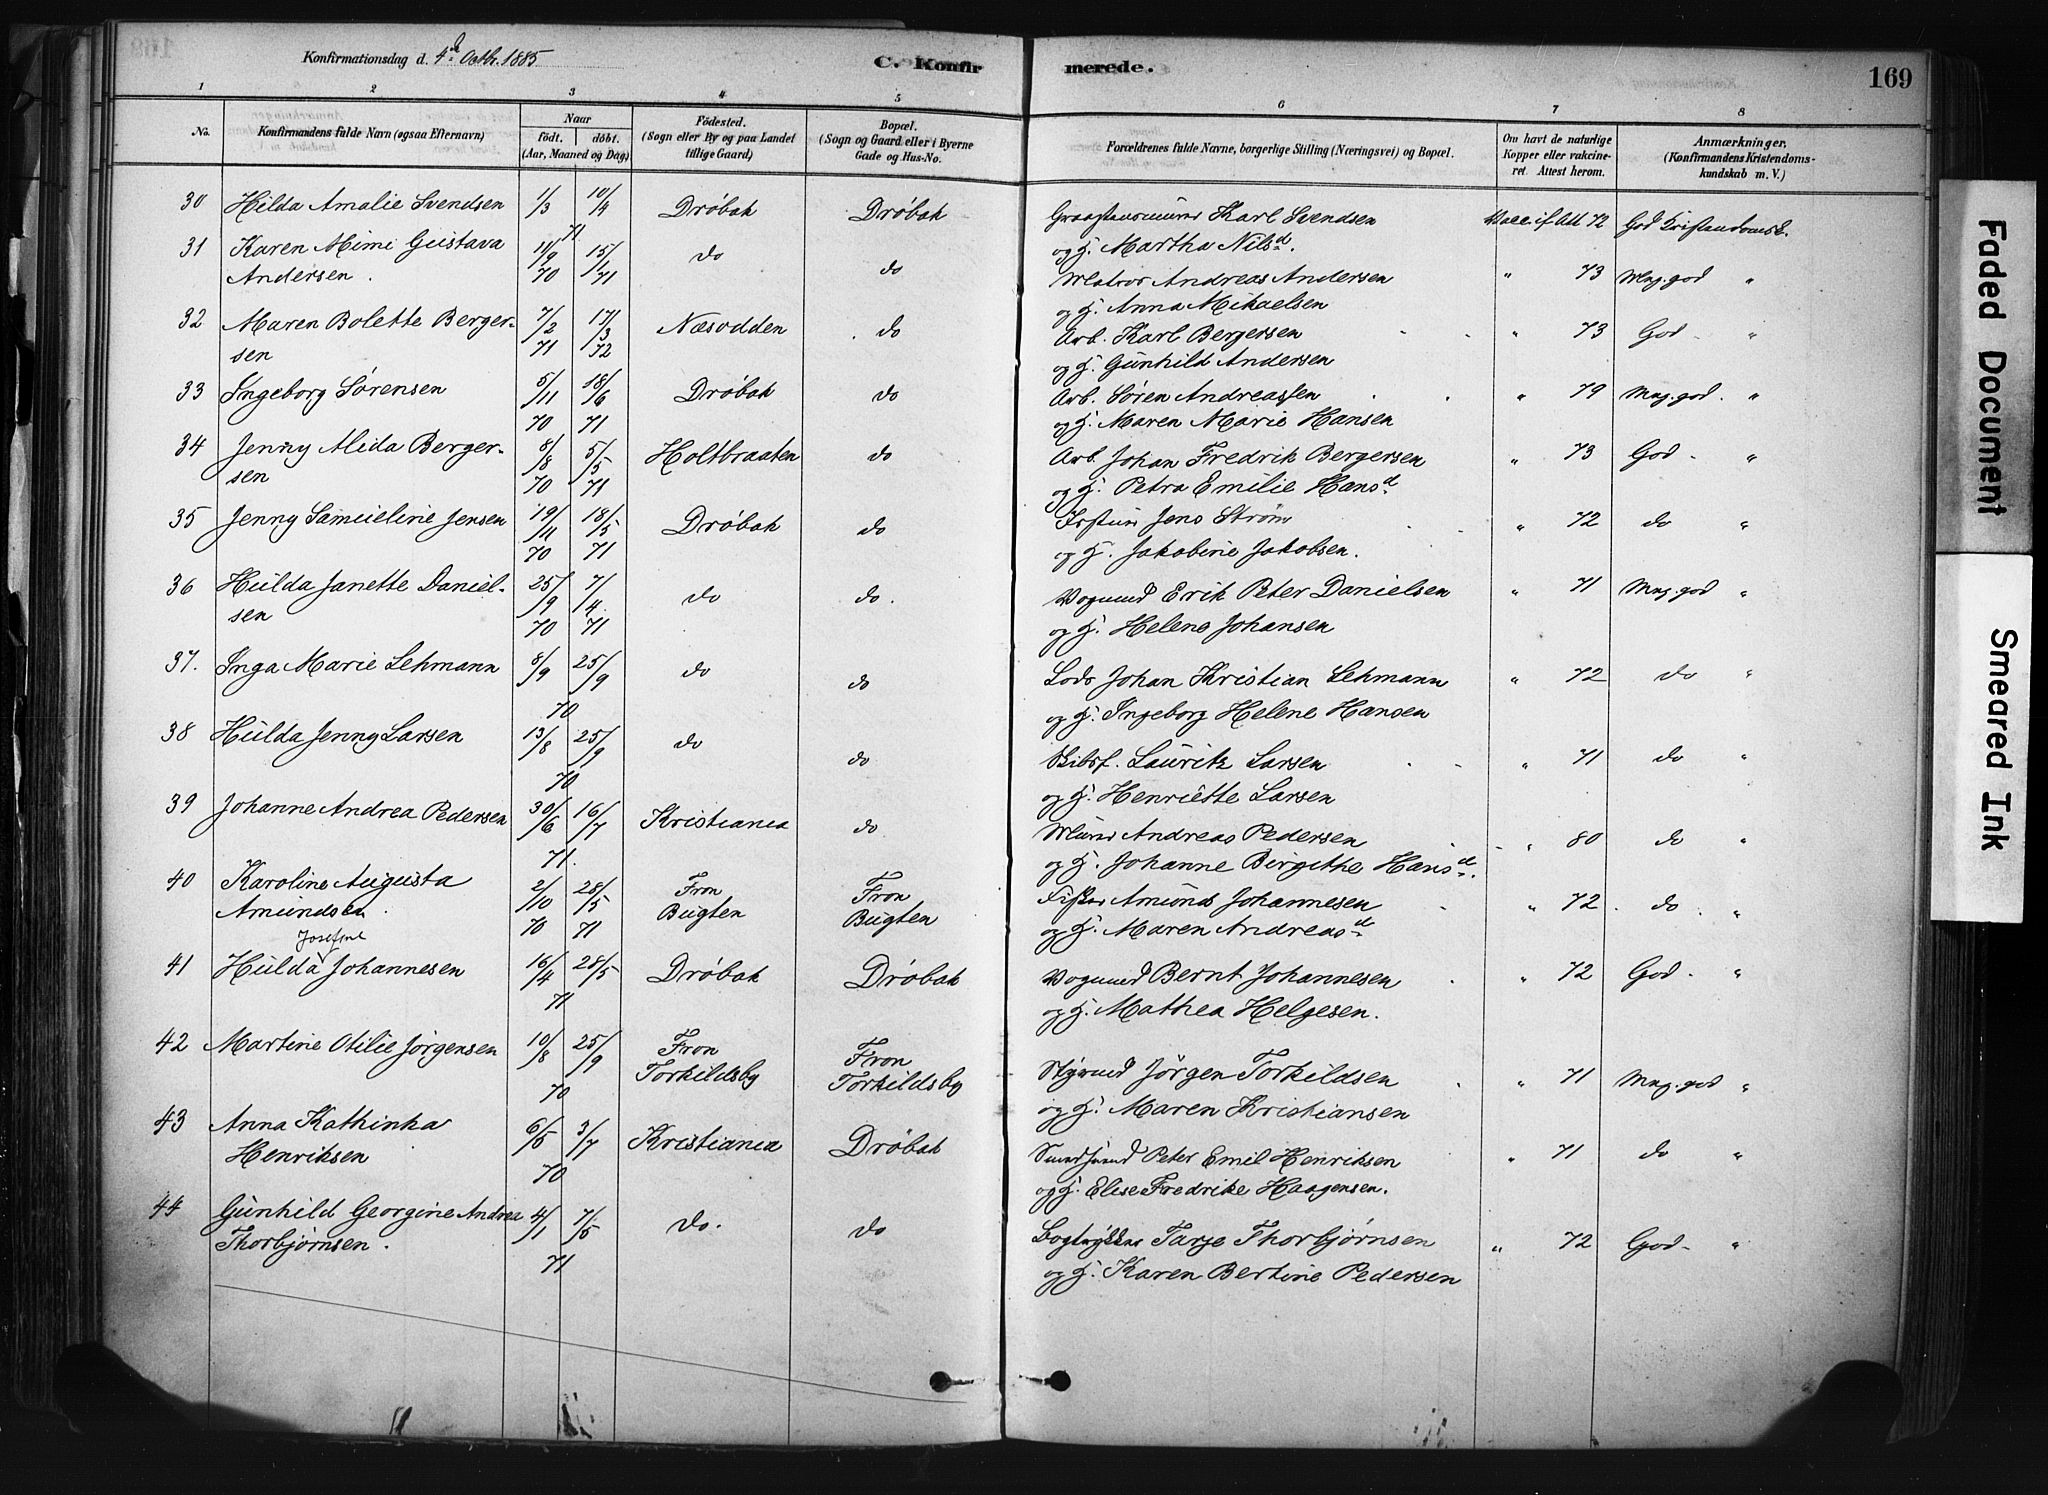 Konfirmationsdag d. 4de Octbr. 1885
C. Konfirmerede.
169
1 2 3 4 5 6 7 8
No.
Konfirmandens fulde Navn (ogsaa Efternavn)
Naar
födt. döbt.
(Aar, Maaned og Dag)
Födested.
(Sogn eller By og paa Landet
tillige Gaard)
Bopæl.
(Sogn og Gaard eller i Byerne
Gade og Hus-No.
Forældrenes fulde Navne, borgerlige Stilling (Næringsvei) og Bopæl.
Om havt de naturlige
Kopper eller vakcine-
ret. Attest herom.
Anmærkninger.
(Konfirmandens Kristendoms-
kundskab m. V.)
30 Hilda Amalie Svendsen 1/3 10/4 71 Drøbak Drøbak Karl Svendsen
og H. Martha Nilsd. 72 God Kristendomsk.
31 Karen Mimi Gustava
Andersen. 11/9 70 15/1 71 do do Matros Andreas Andersen
og H. Anna Mikaelsen " 73 Mng. god "
32 Maren Bolette Berger-
sen 7/2 71 17/3 72 Næsodden do Arb. Karl Bergersen
og H. Gunhild Andersen " 73 God "
33 Ingeborg Sørensen 5/11 70 18/6 71 Drøbak do Arb. Søren Andreassen
og H. Maren Marie Hansen " 79 Mng. god "
34 Jenny Alida Berger-
sen 8/8 70 5/5 71 Holtbraaten do Arb. Johan Fredrik Bergersen
og H. Petra Emilie Hansd. " 73 God "
35 Jenny Samueline Jensen 19/11 70 18/5 71 Drøbak do Jens Strøm
og H. Jakobine Jakobsen. " 72 do "
36 Hulda Janette Daniel-
sen 25/9 70 7/4 71 do do. Vognmd Erik Peter Danielsen
og H. Helene Johansen " 71 Mng. god "
37. Inga Marie Lehmann 8/9 25/9 70 do do Lods Johan Kristian Lehmann
og H. Ingeborg Helene Hansen " 72 do "
38 Hulda Jenny Larsen 13/8 25/9 70 do do Skibsf. Lauritz Larsen
og H. Henriette Larsen " 71 do "
39 Johanne Andrea Pedersen 30/6 16/7 71. Kristiania do Murer Andreas Pedersen
og H. Johanne Birgithe Hansd. " 80 do "
40 Karoline Augusta
Amundsen. 2/10 70 28/5 71 Fron
Bugten Fron
Bugten Fisker Amund Johannesen
og H. Maren Andreasd " 72 do "
41 Hulda Josefine Johannesen 16/4 28/5 71 Drøbak Drøbak Vognmd Bernt Johannesen
og H. Mathea Helgesen. " 72 God "
42 Martine Otilie Jørgensen 10/8 25/9 70 Fron
Torkildsby Fron
Torkildsby Styrmd Jørgen Torkildsen
og H. Maren Kristiansen " 71 Mng. god "
43 Anna Kathinka
Henriksen 6/5 3/7 70 Kristiania Drøbak Peter Emil Henriksen
og H. Elise Fredrike Haagensen. " 71 do "
44 Gunhild Georgine Andrea
Thorbjørnsen. 4/1 7/5 71 do. do Bogtrykker Tarje Thorbjørnsen
og H. Karen Bertine Pedersen " 72 God "
Faded Document
Smeared Ink